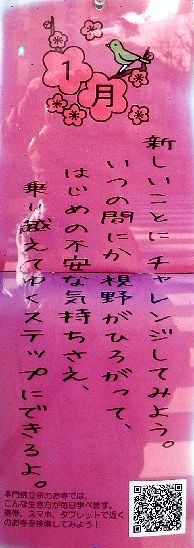 1月
新しいことにチャレンジしてみよう。
いつの間にか視野がひろがって、
はじめの不安な気持ちさえ、
乗り越えてゆくステップにできるよ。
本門佛立宗のお寺では、
こんな生き方が毎日学べます。
携帯、スマホ、タブレットで近く
のお寺を検索してみよう！